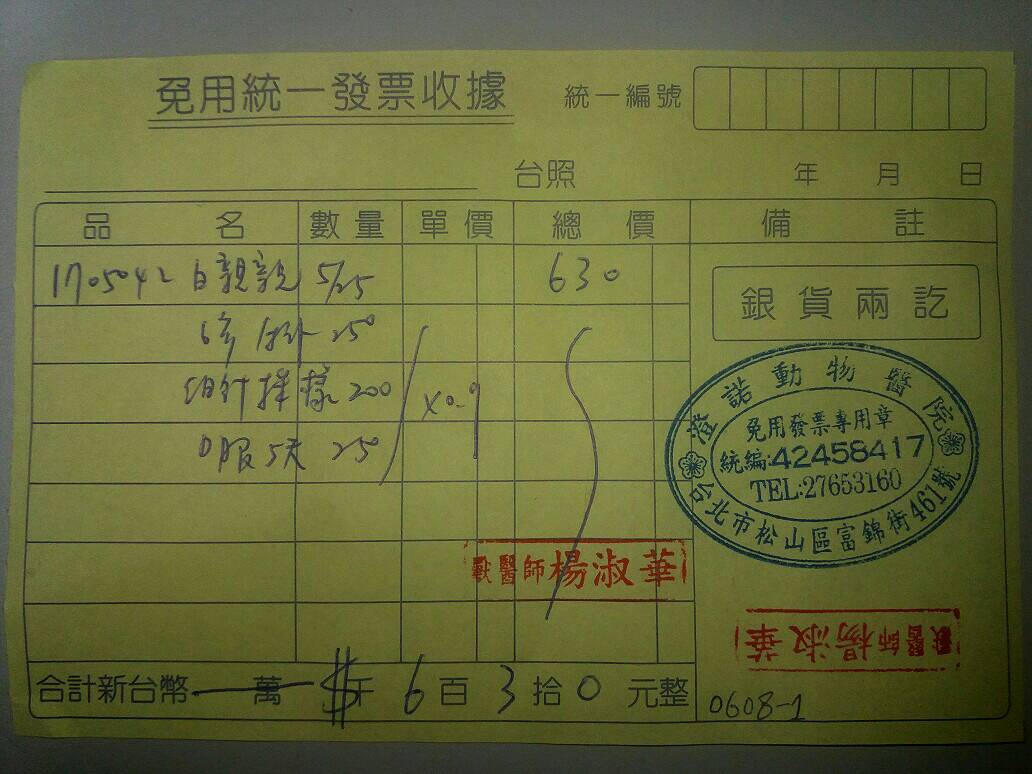 免用統一發票收據
統一編號
台照 年 月 日
品名 數量 單價 總價 備註
1705042 白親親 5/25 630
銀貨兩訖
診 250
採樣 200 x0.9
口服5天 250
澄諾動物醫院
免用發票專用章
統編:42458417
TEL:27653160
台北市松山區富錦街461號
獸醫師楊淑華
獸醫師楊淑華
合計新台幣 萬 $ 千 6 百 3 拾 0 元整
0608-1